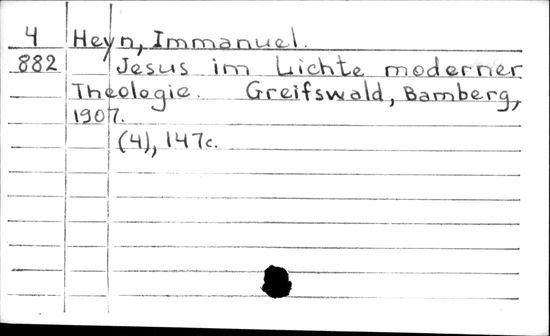 4 Heyn, Immanuel.
882 Jesus im Lichte moderner
Theologie. Greifswald, Bamberg,
1907.
(4), 147c.